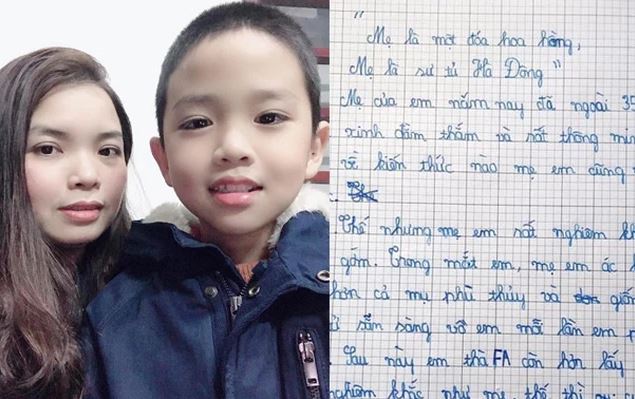 "Mẹ là một đóa hoa hồng,
Mẹ là sư tử Hà Đông"
Mẹ của em năm nay đã ngoài 35
xinh đằm thắm và rất thông min
về kiến thức nào mẹ em cũng
Thế nhưng mẹ em rất nghiêm kh
gớm. Trong mắt em, mẹ em ác
hơn cả mụ phù thủy và giấ
sẵn sàng vồ em mỗi lần em
Sau này em thà FA còn hơn lấy
nghiêm khắc như mẹ, thế thì